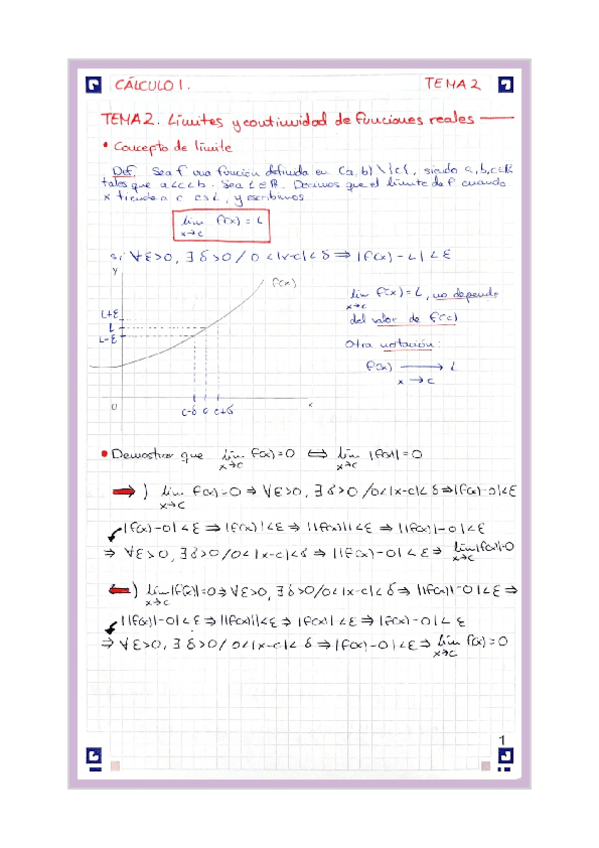 CÁLCULO 1. TEMA 2
TEMA 2. Límites y continuidad de funciones reales
• Concepto de límite
Def. Sea f una función definida en (a,b)\{c}, siendo a,b,c∈ℝ
tales que a<c<b. Sea L∈ℝ. Decimos que el límite de f cuando
x tiende a c es L, y escribimos
lim f(x) = L
x→c
si ∀ε>0, ∃δ>0 / 0<|x-c|<δ ⇒ |f(x)-L|<ε
y
f(x)
L+ε
L
L-ε
0
c-δ c c+δ
x
lim f(x) = L, no depende
x→c
del valor de f(c)
Otra notación:
f(x) → L
x→c
• Demostrar que lim f(x)=0 ⇔ lim |f(x)|=0
x→c x→c
⇒) lim f(x)=0 ⇒ ∀ε>0, ∃δ>0 /0<|x-c|<δ ⇒|f(x)-0|<ε
x→c
|f(x)-0|<ε ⇒ |f(x)|<ε ⇒ ||f(x)||<ε ⇒ ||f(x)|-0|<ε
⇒ ∀ε>0, ∃δ>0 /0<|x-c|<δ ⇒ ||f(x)|-0|<ε ⇒ lim|f(x)|=0
x→c
⇐) lim|f(x)|=0 ⇒ ∀ε>0, ∃δ>0/0<|x-c|<δ ⇒ ||f(x)|-0|<ε ⇒
x→c
||f(x)|-0|<ε ⇒ ||f(x)||<ε ⇒ |f(x)|<ε ⇒ |f(x)-0|<ε
⇒ ∀ε>0, ∃δ>0/ 0<|x-c|<δ ⇒ |f(x)-0|<ε ⇒ lim f(x)=0
x→c
1